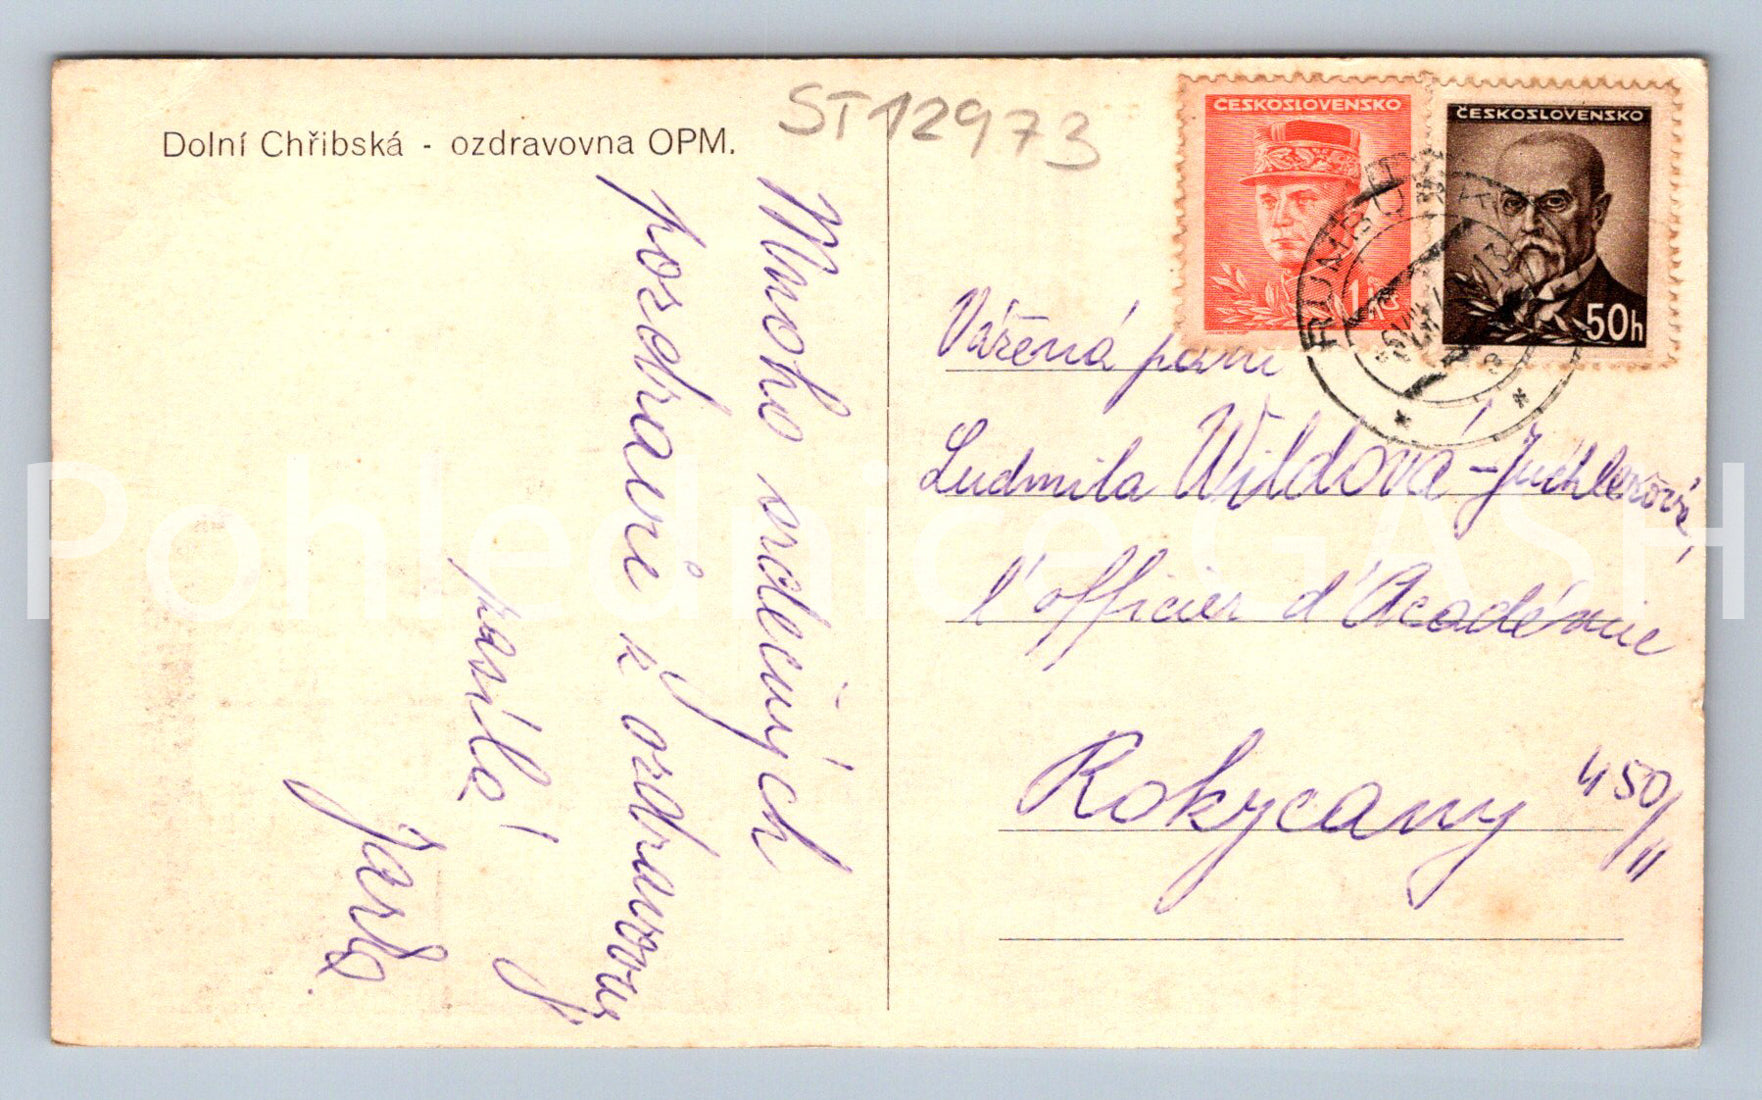 Dolní Chřibská - ozdravovna OPM.
ST 12973
Mnoho srdečných
pozdravů z ozdravovny
posílá!
Jarka.
ČESKOSLOVENSKO
1 Kčs
ČESKOSLOVENSKO
50h
RUMBURK
Vážená paní
Ludmila Wildová-
l'officier d'Académie
Rokycany 450/II
Pohlednice GASH